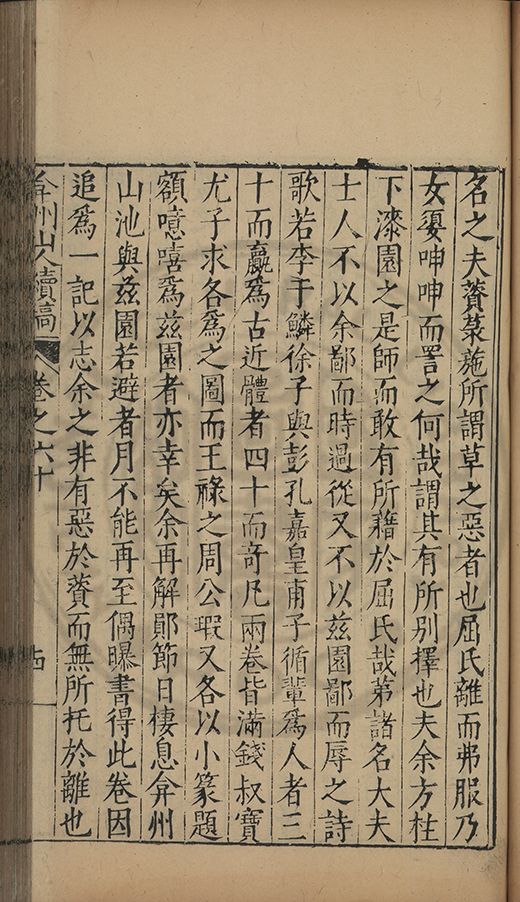 名之夫薋菉葹所謂草之惡者也屈氏離而弗服乃
女嬃呻呻而詈之何哉謂其有所別擇也夫余方柱
下漆園之是師而敢有所藉於屈氏哉第諸名大夫
士人不以余鄙而時過從又不以茲園鄙而辱之詩
歌若李于鱗徐子與彭孔嘉皇甫子循輩爲人者三
十而羸爲古近體者四十而奇凡兩卷皆滿錢叔寶
尤子求各爲之圖而王祿之周公瑕又各以小篆題
額噫嘻爲茲園者亦幸矣余再解鄖節日棲息弇州
山池與茲園若避者月不能再至偶曝書得此卷因
追爲一記以志余之非有惡於薋而無所托於離也
弇州山人續稿
卷之六十
十四